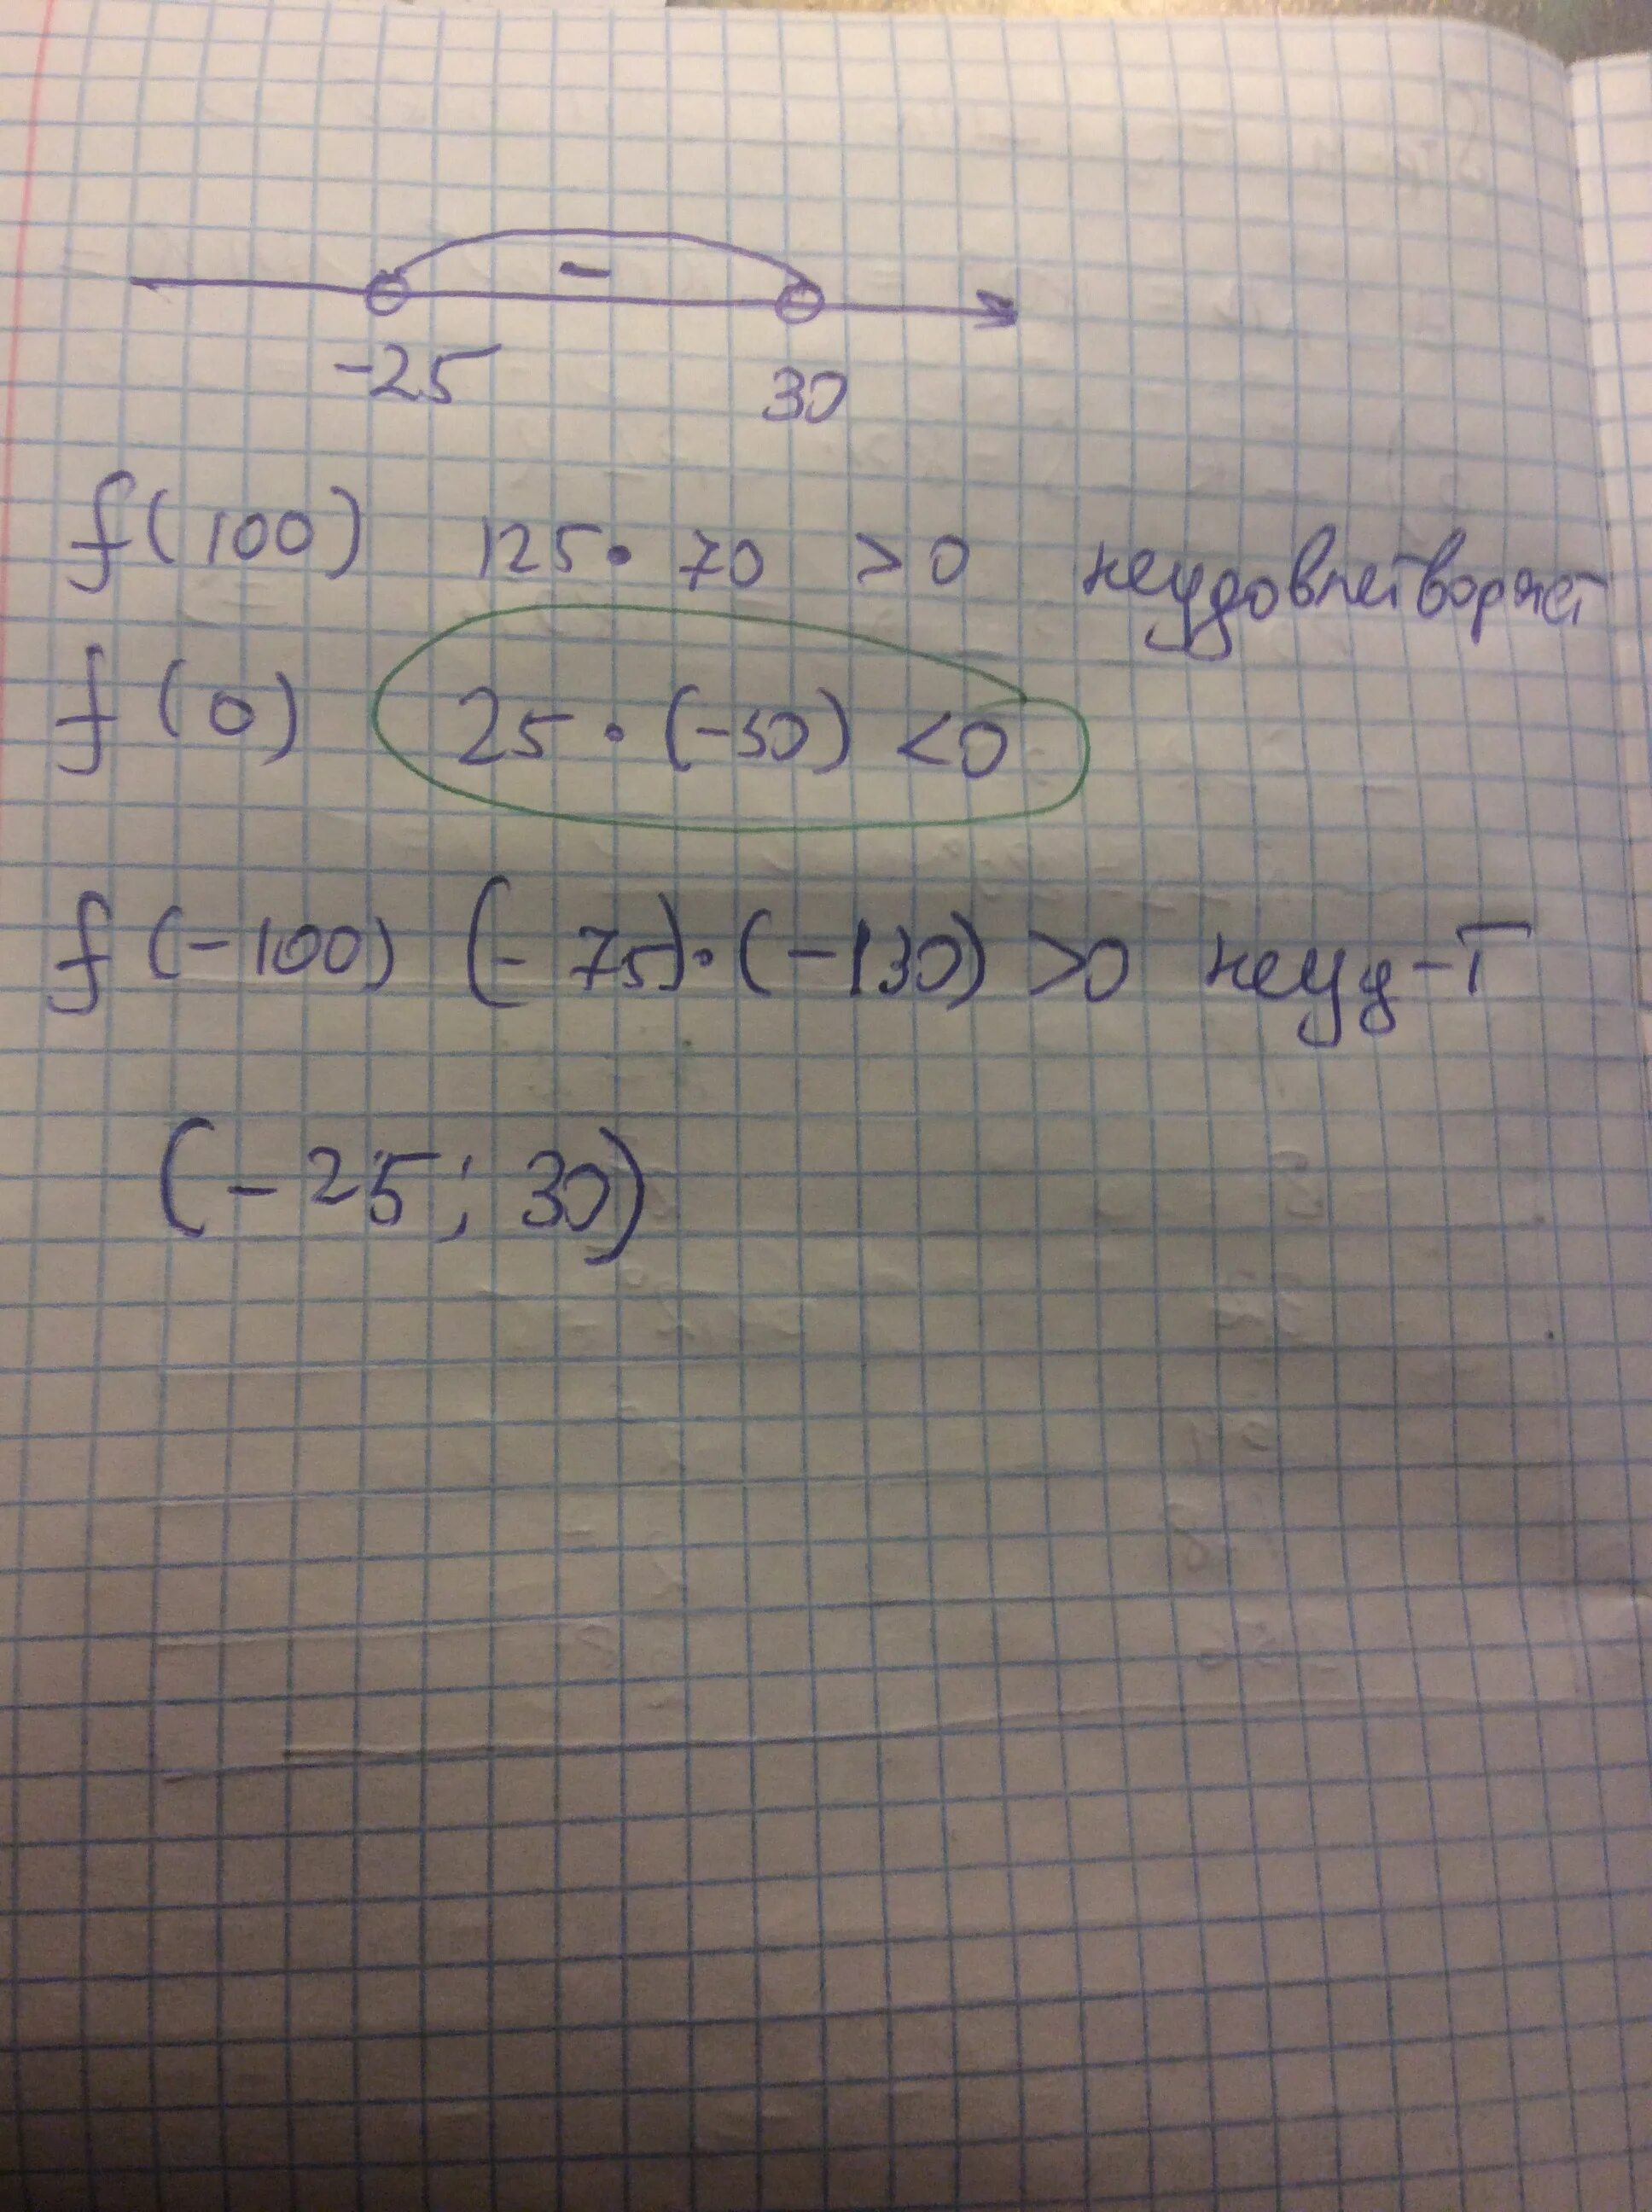 -
-25 30
f(100) 125 · 70 > 0 неудовлетворяет
f(0) 25 · (-30) < 0
f(-100) (-75) · (-130) > 0 неуд-т
(-25; 30)